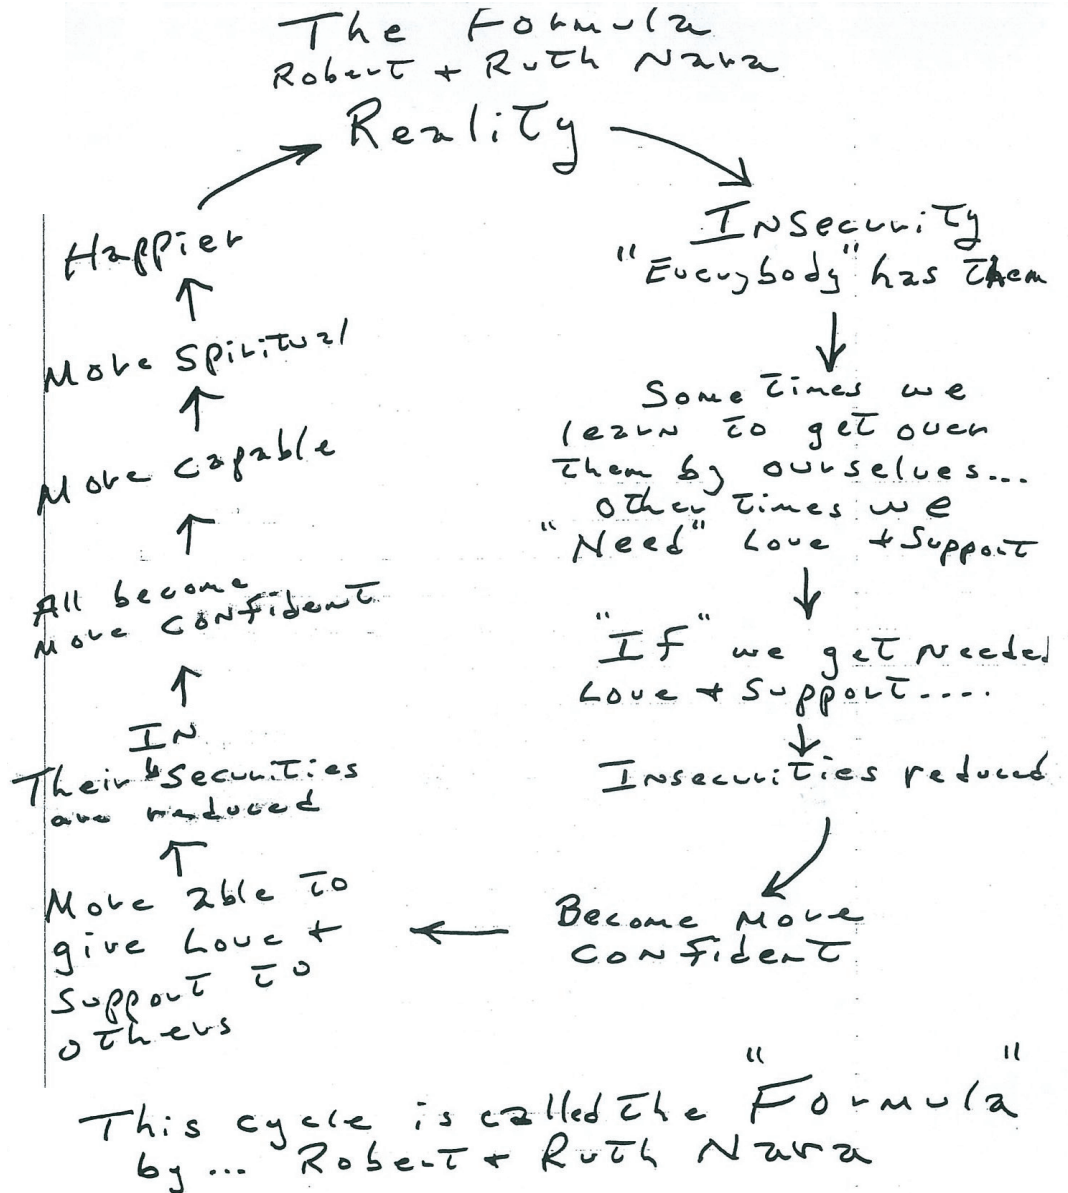 The Formula
Robert + Ruth Nara
Reality
Insecurity
"Everybody" has them
Some times we
learn to get over
them by ourselves...
other times we
"Need" Love + Support
"If" we get needed
Love + Support....
Insecurities reduced
Become More
Confident
More able to
give Love +
Support to
others
IN
Their securities
are reduced
All become
More confident
More capable
More Spiritual
Happier
This cycle is called the "Formula"
by... Robert + Ruth Nara